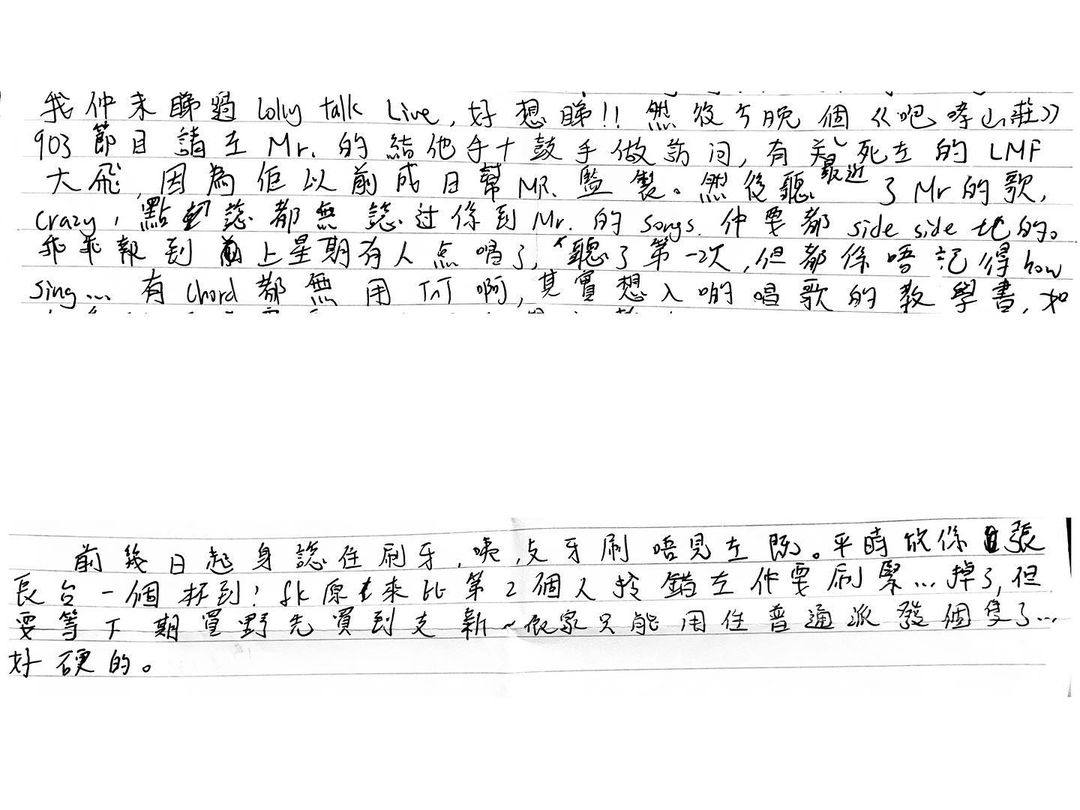 我仲未睇過 Lolly talk Live,好想睇!! 然後今晚個《吧哮山莊》
903 節目請左 Mr. 的結他手+鼓手做訪问,有关死左的 LMF
大飛,因為佢以前成日幫 MR. 監製。然後聽最近了 Mr 的歌,
Crazy,點都無諗过係到 Mr. 的 songs. 仲要都 side side 地的。
乖乖報到 上星期有人点唱了,聽了第一次,但都係唔記得 how
sing... 有 Chord 都無用 TnT 啊,其實想入啲唱歌的教學書,如
前幾日起身諗住刷牙,咦,支牙刷唔見左既。平時放係張
長台一個杯到! fk 原來比第2個人拎錯左仲要刷緊...掉了,但
要等下期買野先買到支新~依家只能用住普通派發個隻了...
好硬的。